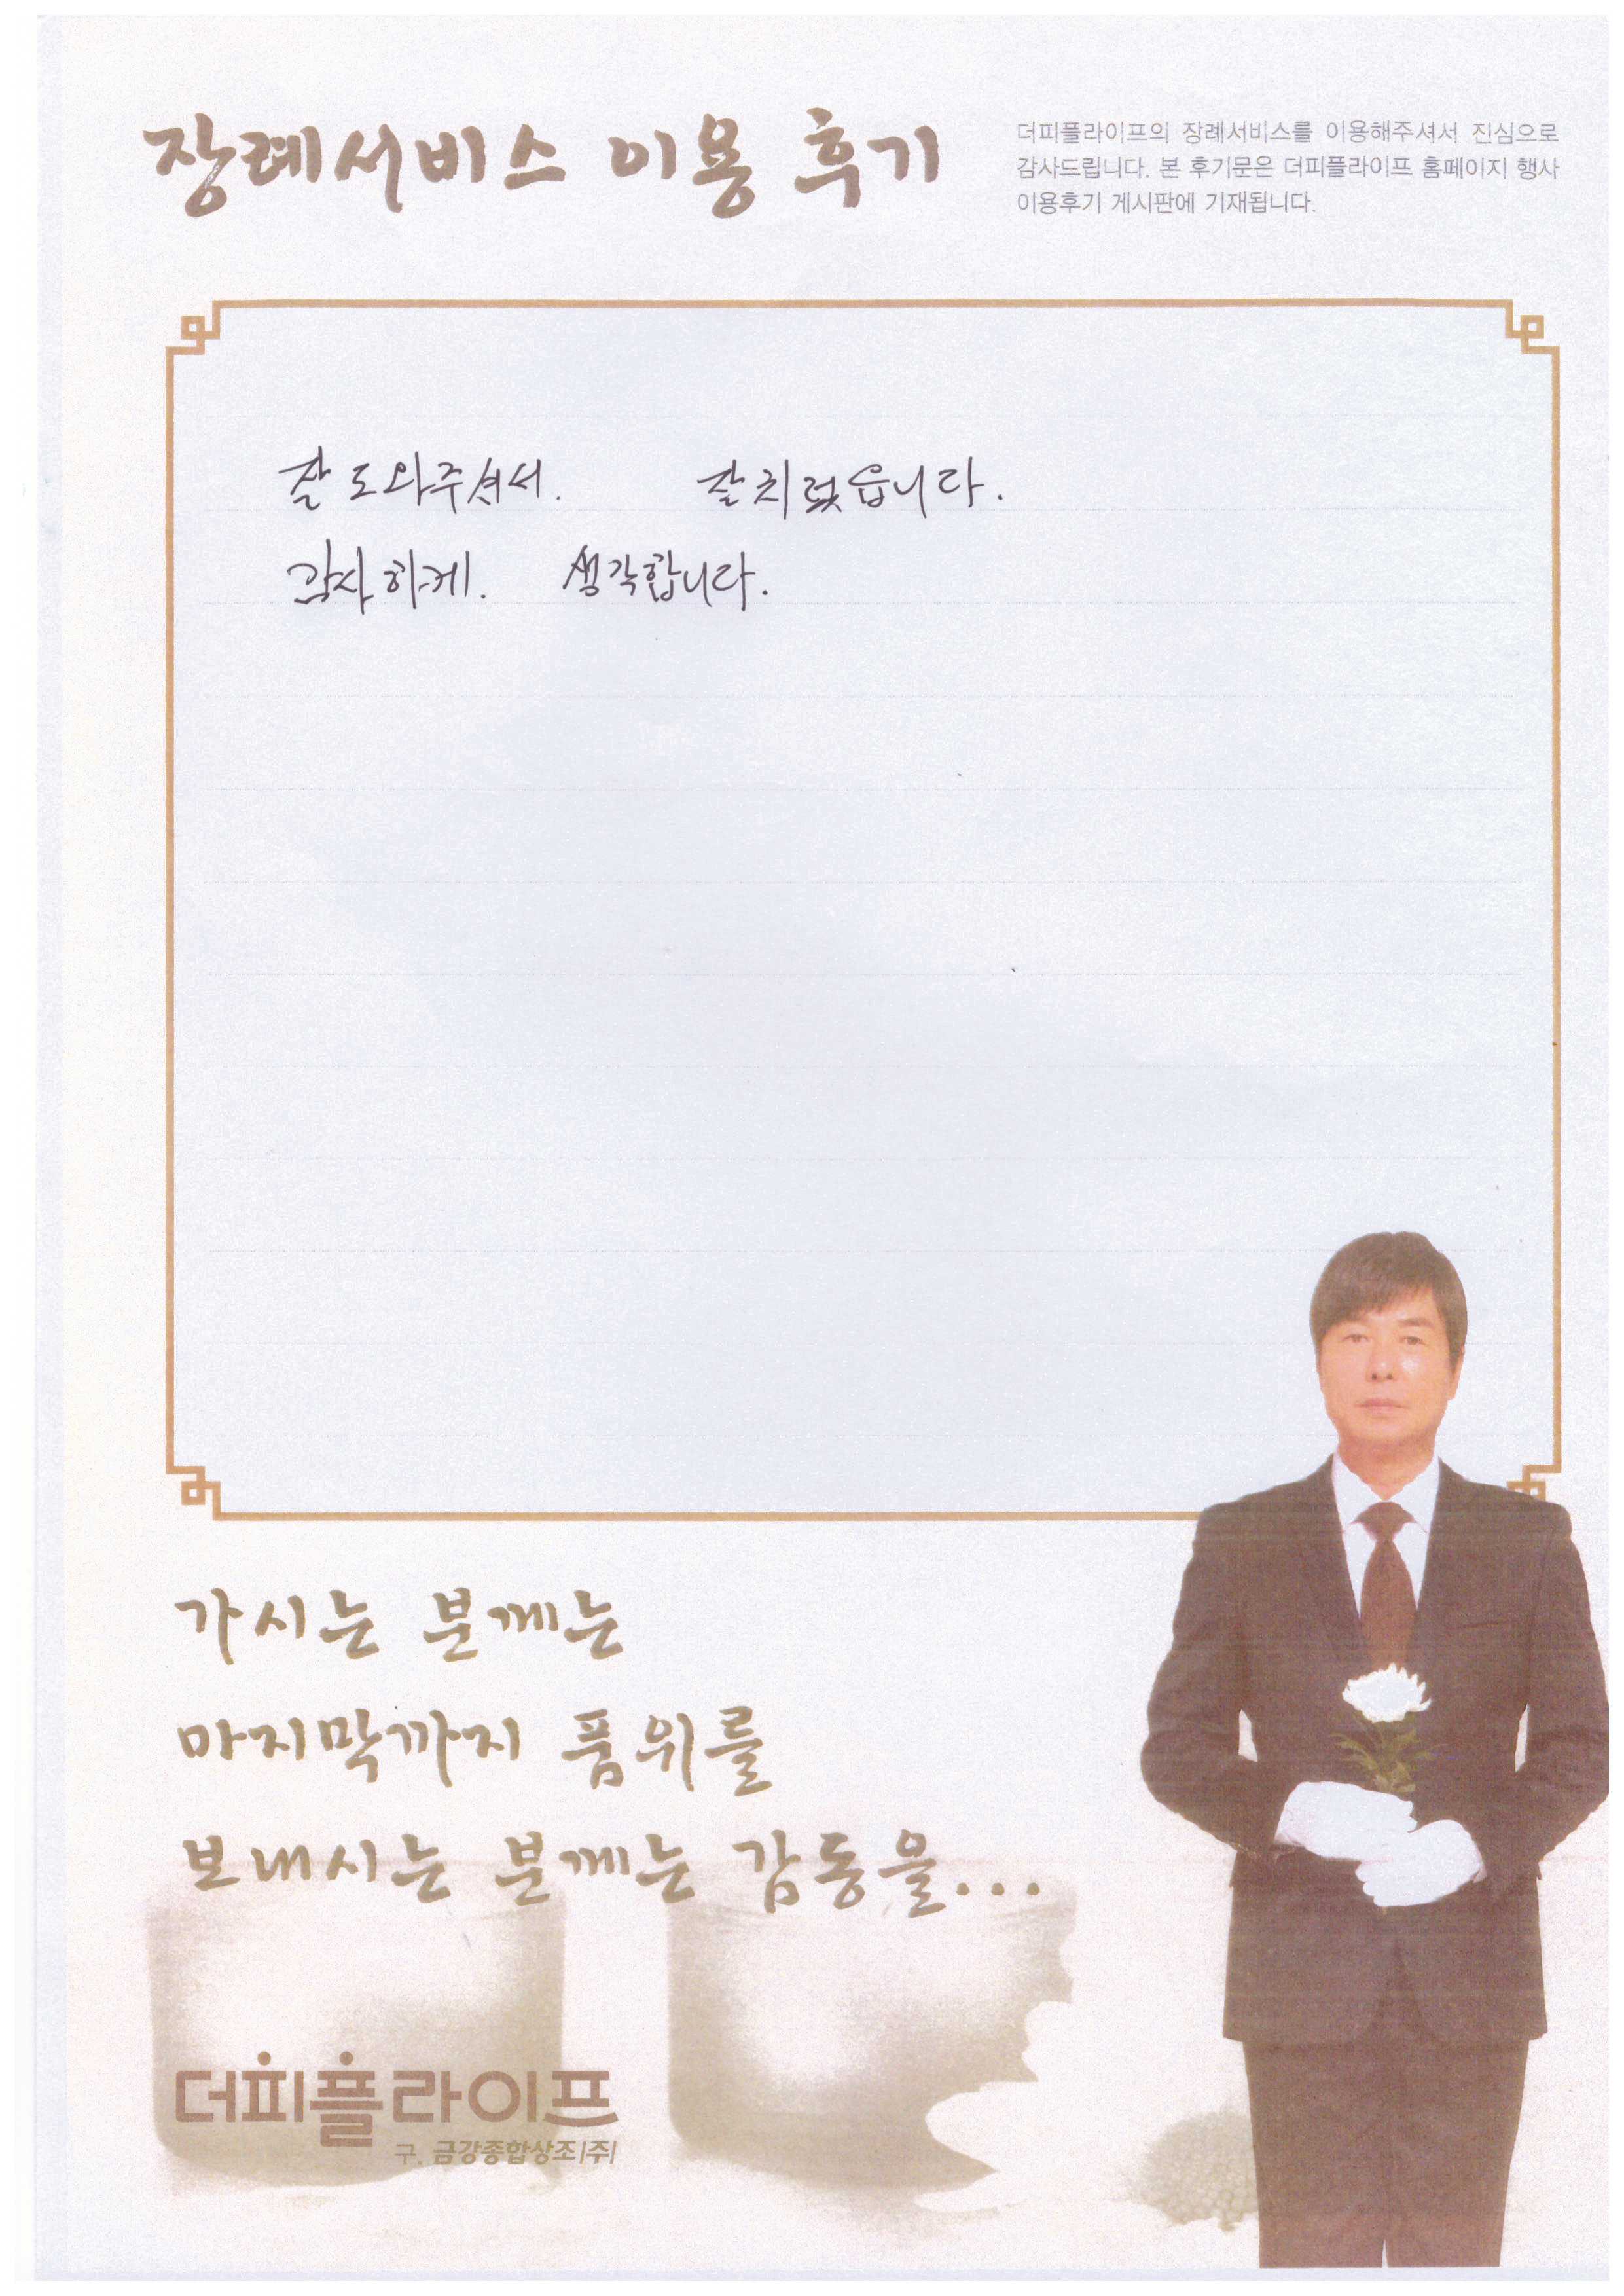 장례서비스 이용 후기
더피플라이프의 장례서비스를 이용해주셔서 진심으로
감사드립니다. 본 후기문은 더피플라이프 홈페이지 행사
이용후기 게시판에 기재됩니다.
잘 도와주셔서. 잘치렀읍니다.
감사하게. 생각합니다.
가시는 분께는
마지막까지 품위를
보내시는 분께는 감동을...
더피플라이프
구. 금강종합상조(주)